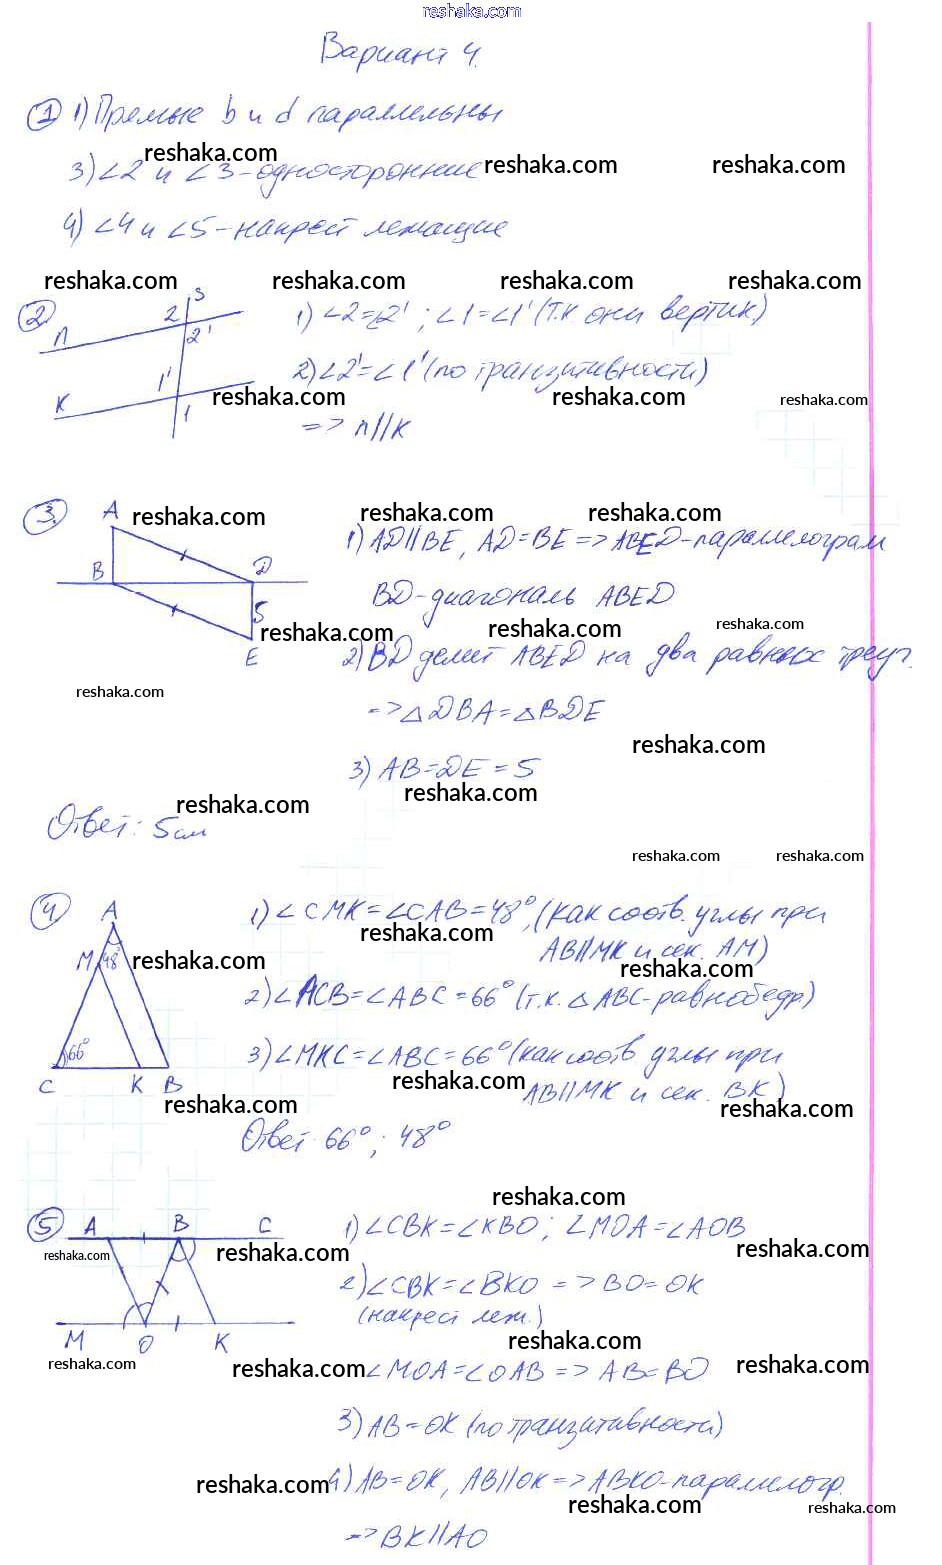 reshaka.com
Вариант 4.
① 1) Прямые b и d параллельны
reshaka.com
3) ∠2 и ∠3 - односторонние reshaka.com reshaka.com
4) ∠4 и ∠5 - накрест лежащие
reshaka.com reshaka.com reshaka.com reshaka.com
② n K S 2 2' 1' 1
1) ∠2=∠2' ; ∠1=∠1' (т.к они вертик.)
2) ∠2'=∠1' (по транзитивности)
reshaka.com reshaka.com reshaka.com
=> n//K
③ A B D 5 E
reshaka.com reshaka.com reshaka.com
1) AD//BE, AD=BE => ABED - параллелограм
BD - диагональ ABED
reshaka.com reshaka.com reshaka.com
2) BD делит ABED на два равных треуг.
reshaka.com
=> △DBA = △BDE
reshaka.com
3) AB = DE = 5
reshaka.com reshaka.com
Ответ: 5см
reshaka.com reshaka.com
④ A M 48° 66° C K B
1) ∠CMK = ∠CAB = 48°, (как соотв. углы при
reshaka.com
AB//MK и сек. AM)
reshaka.com reshaka.com
2) ∠ACB = ∠ABC = 66° (т.к. △ABC - равнобедр.)
3) ∠MKC = ∠ABC = 66° (как соотв углы при
reshaka.com
AB//MK и сек. BK)
reshaka.com reshaka.com
Ответ: 66° ; 48°
reshaka.com
⑤ A B C M O K
1) ∠CBK = ∠KBO ; ∠MOA = ∠AOB
reshaka.com reshaka.com reshaka.com
2) ∠CBK = ∠BKO => BO = OK
(накрест леж.)
reshaka.com
reshaka.com reshaka.com reshaka.com
∠MOA = ∠OAB => AB = BO
3) AB = OK (по транзитивности)
4) AB = OK, AB//OK => ABKO - параллелогр.
reshaka.com reshaka.com reshaka.com
=> BK//AO